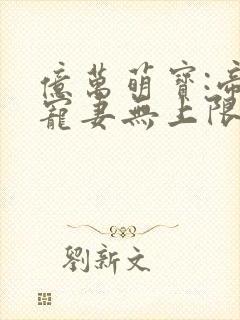 億萬萌寶:帝
寵妻無上限
劉新文